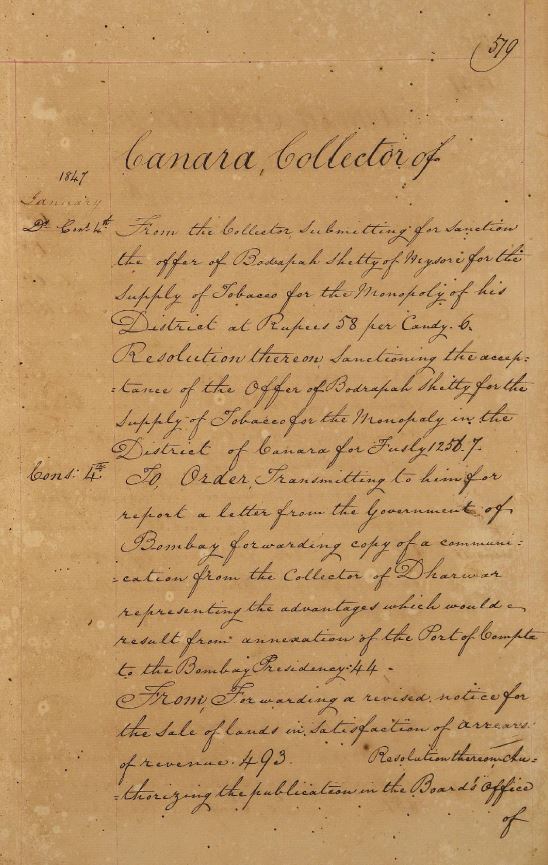 519
Canara, Collector of
1847
January
Do Cons: 4th From the Collector, Submitting for Sanction
the offer of Bodrapah Shetty of Mysore for the
Supply of Tobacco for the Monopoly of his
District at Rupees 58 per Candy. 6.
Resolution thereon, Sanctioning the accep:
=tance of the Offer of Bodrapah Shetty for the
Supply of Tobacco for the Monopoly in the
District of Canara for Fusly 1256. 7.
Cons: 4th To, Order, Transmitting to him for
report a letter from the Government of
Bombay forwarding copy of a communi:
=cation from the Collector of Dharwar
representing the advantages which would
result from annexation of the Port of Compta
to the Bombay Presidency. 44 -
From, Forwarding a revised notice for
the Sale of lands in satisfaction of arrears
of revenue. 493. Resolution thereon Au=
=thorizing the publication in the Board's Office
of